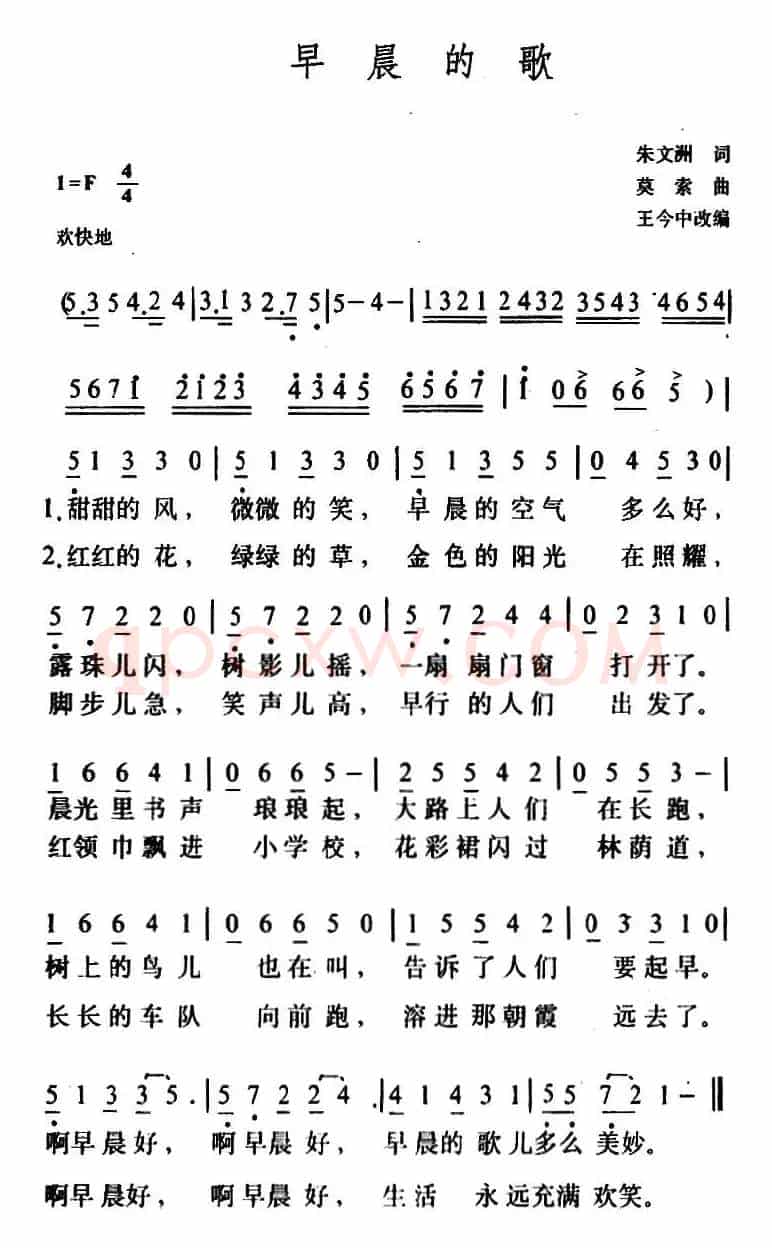 早晨的歌
朱文洲 词
1=F 4/4
莫索 曲
王今中改编
欢快地
(5.3 5 4.2 4|3.1 3 2.7 5|5-4-|1321 2432 3543 4654|
5671 2123 4345 6567|1 06 66 5)|
5 1 3 3 0|5 1 3 3 0|5 1 3 5 5|0 4 5 3 0|
1.甜甜的风, 微微的笑, 早晨的空气 多么好,
2.红红的花, 绿绿的草, 金色的阳光 在照耀,
5 7 2 2 0|5 7 2 2 0|5 7 2 4 4|0 2 3 1 0|
露珠儿闪, 树影儿摇, 一扇扇门窗 打开了。
脚步儿急, 笑声儿高, 早行的人们 出发了。
qpcxw.COM
1 6 6 4 1|0 6 6 5-|2 5 5 4 2|0 5 5 3-|
晨光里书声 琅琅起, 大路上人们 在长跑,
红领巾飘进 小学校, 花彩裙闪过 林荫道,
1 6 6 4 1|0 6 6 5 0|1 5 5 4 2|0 3 3 1 0|
树上的鸟儿 也在叫, 告诉了人们 要起早。
长长的车队 向前跑, 溶进那朝霞 远去了。
5 1 3 3 5.|5 7 2 2 4.|4 1 4 3 1|5 5 7 2 1-‖
啊早晨好, 啊早晨好, 早晨的歌儿多么美妙。
啊早晨好, 啊早晨好, 生活 永远充满欢笑。